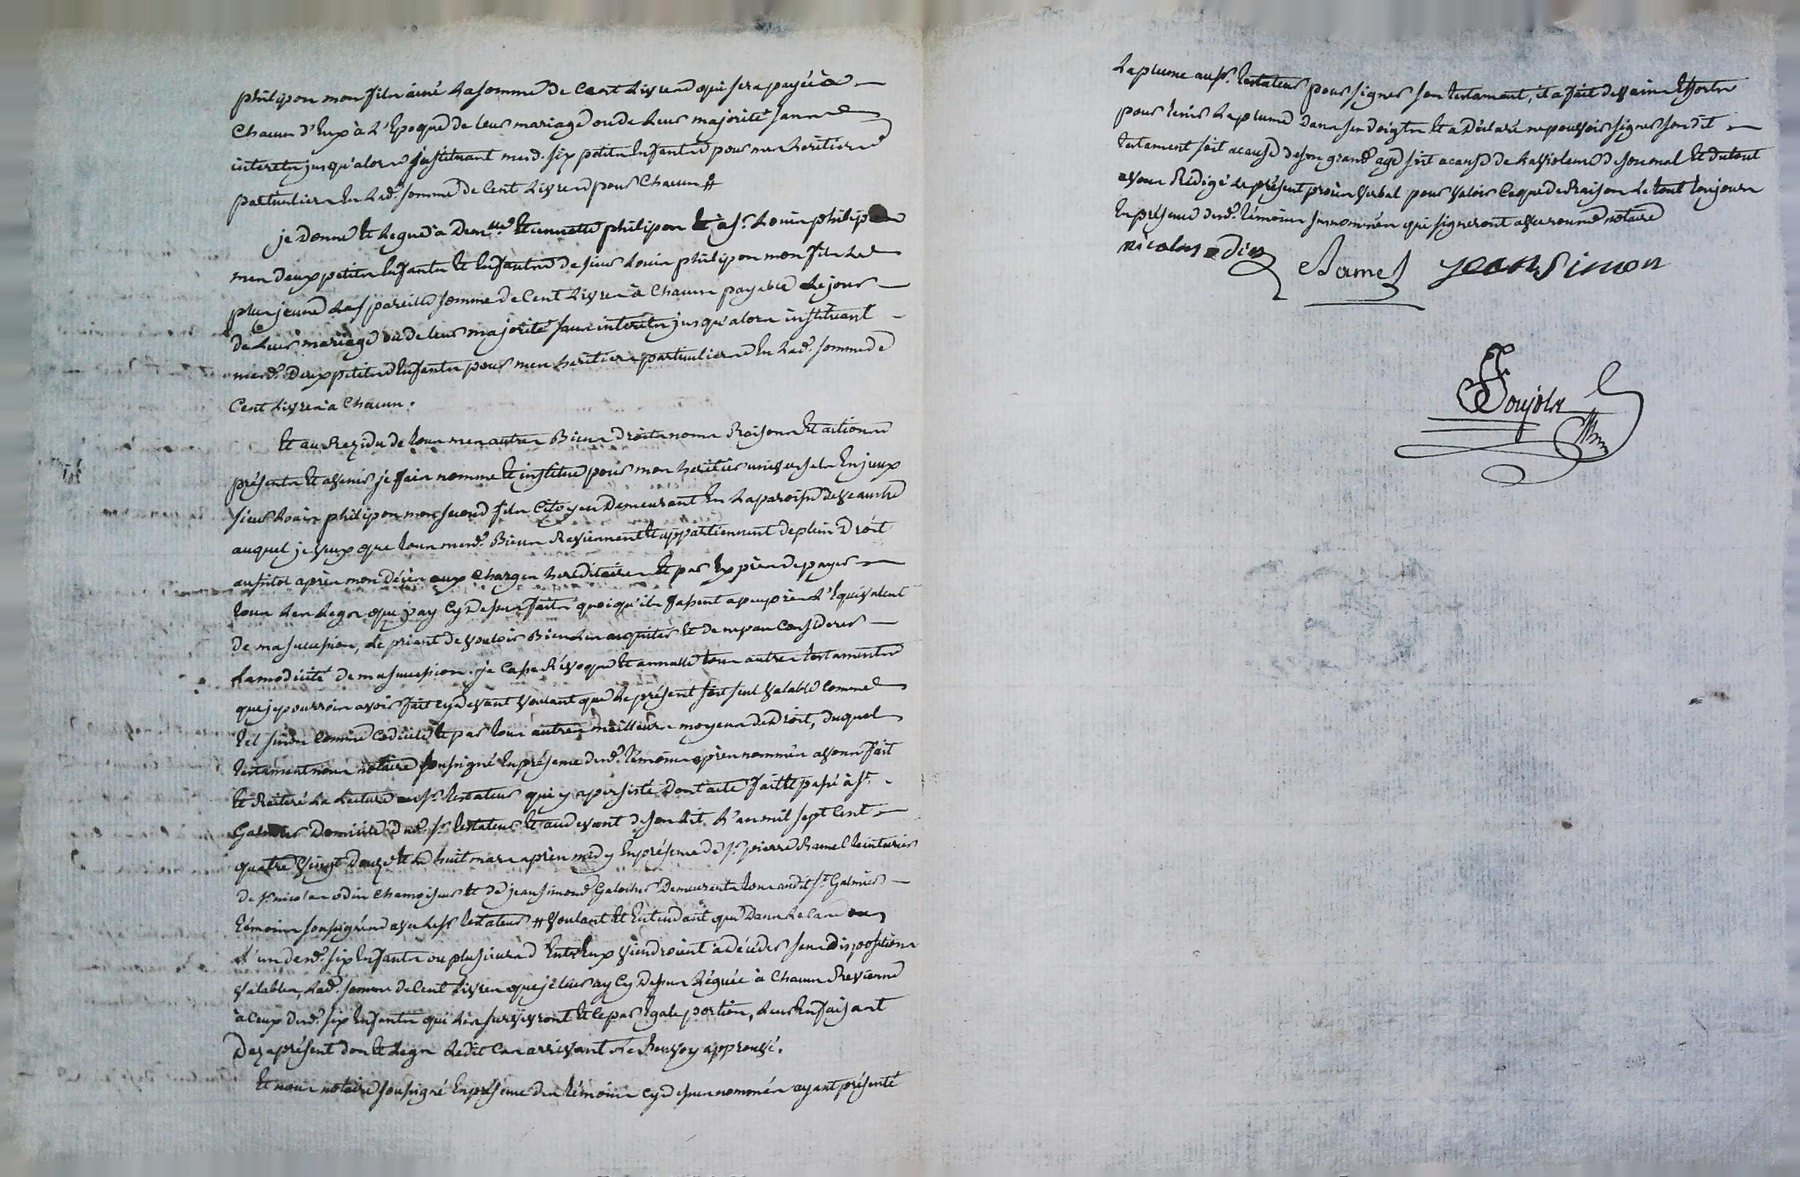 philipon mon fils ainé la somme de Cent Livres qui sera payée à
Chacun d'Eux à L'Epoque de leur mariage ou de leur majorité sans
interets jusqu'alors instituant mesd. six petits Enfants pour mes heritiers
particuliers En lad. somme de Cent Livres pour Chacun #
je donne et Legue à Dem.lle Etiennette philipon et à s.r Louis philipon
mes deux petits Enfants et Enfants de sieur Louis philipon mon fils le
plus jeune La pareille somme de Cent Livres à Chacun payable Le jour
de Leur mariage ou de leur majorité sans interets jusqu'alors instituant
mesd. Deux petits Enfants pour mes heritiers particuliers En lad. somme de
Cent Livres à Chacun.
Et au Rezidu de tous mes autres Biens droits noms Raisons et actions
présents et avenir je fais nomme et institue pour mon heritier universel
sieur Louis philipon mon second fils Citoyen Demeurant En La paroisse de veauche
auquel je veux que tous mesd. Biens Reviennent et appartiennent de plein Droit
aussitot après mon décès aux Charges hereditaires Et par Exprès de payer
tous Les Legs que j'ay Cy Dessus faits quoiqu'ils fassent apeuprès L'Equivalent
de ma succession, Le priant de vouloir Bien Les acquiter et de ne pas Considerer
La modicité de ma succession. je Casse Révoque et annulle tous autres testaments
que je pourrois avoir fait cy devant voulant que Le présent soit seul valable Comme
tel sinon Comme Codicile et par tous autres meilleurs moyens de Droit, duquel
testament nous notaire soussigné En présence desd. témoins après nommés avons fait
et Reiteré La Lecture aud. s.r testateur qui y a persisté Dont acte fait et passé à s.t
Galmier Domicile dud. s.r testateur et au devant de son Lit L'an mil sept Cent
quatre vingt Douze et le huit mars après midy En présence de s.r pierre Ramel teinturier
de s.r nicolas odin Chamoiseur et de jean simond Galocher Demeurants tous audit s.t Galmier
témoins soussignés avec Led. s.r testateur # voulant Et Entendant que Dans Le Cas ou
L'un desd. six Enfants ou plusieurs d'Entr'Eux viendroient à décéder sans dispositions
valables, Lad. somme de Cent Livres que je Leur ay Cy Dessus Léguée à Chacun Revienne
à Ceux desd. six Enfants qui Les survivront et Ce par Egale portion, Leur En faisant
Dez à présent don et Legs Ledit Cas arrivant Le Renvoy approuvé.
Et nous notaire soussigné En présence des témoins cy dessus nommés ayant présenté
La plume aud. s.r testateur pour signer son testament, il a fait de vains Efforts
pour tenir La plume Dans ses doigts et a Déclaré ne pouvoir signer sondit
testament soit a cause de son grand age soit a cause de La violence de son mal Et du tout
avons Rédigé Le présent procès verbal pour valoir Ce que de Raison Le tout toujours
En présence desd. témoins susnommés qui signeront avec nous notaire
nicolas odin Ramel jean Simon